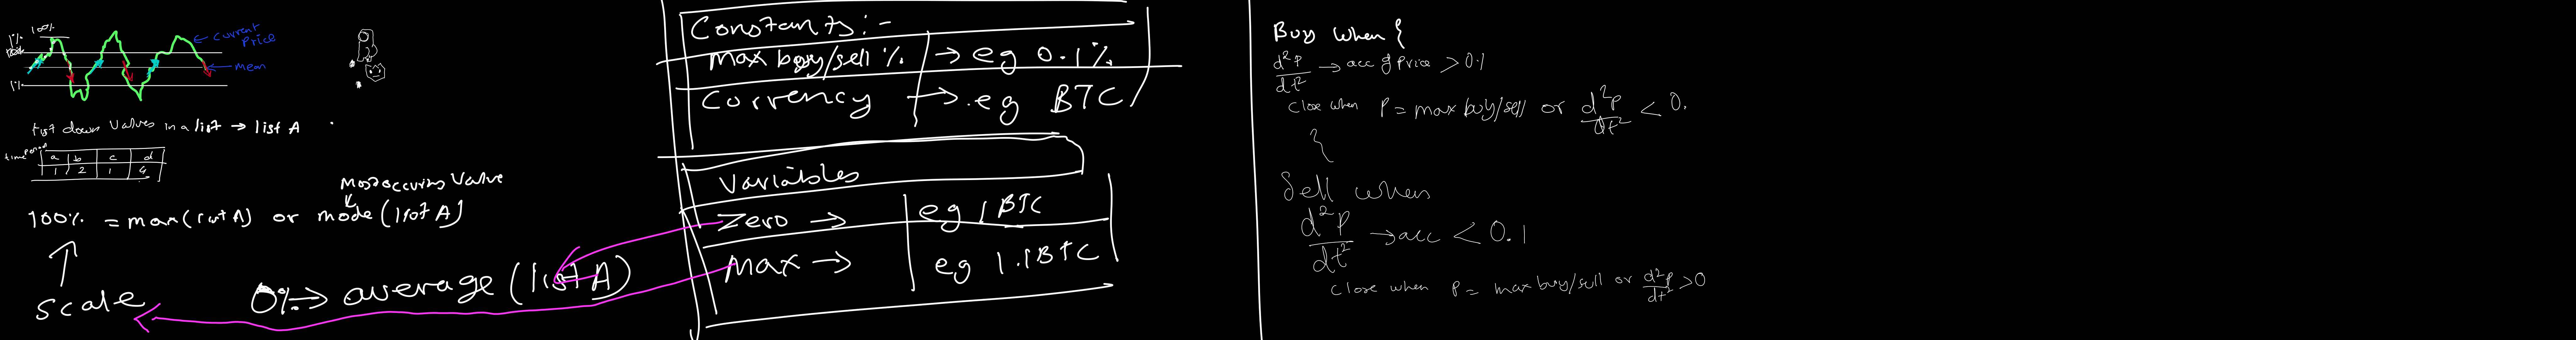 100%
1%
← current price
← mean
1%
list down values in a list → list A
time period
a b c d
1 2 1 4
Most occuring value
100% = max(list A) or mode(list A)
scale
0% → average (list A)
Constants:-
max buy/sell % → eg 0.1%
Currency → eg BTC
Variables
Zero → eg 1 BTC
Max → eg 1.1BTC
Buy when {
d²p/dt² → acc of price > 0.1
Close when P = max buy/sell or d²p/dt² < 0.
}
Sell when
d²p/dt² → acc < 0.1
Close when P = max buy/sell or d²p/dt² > 0